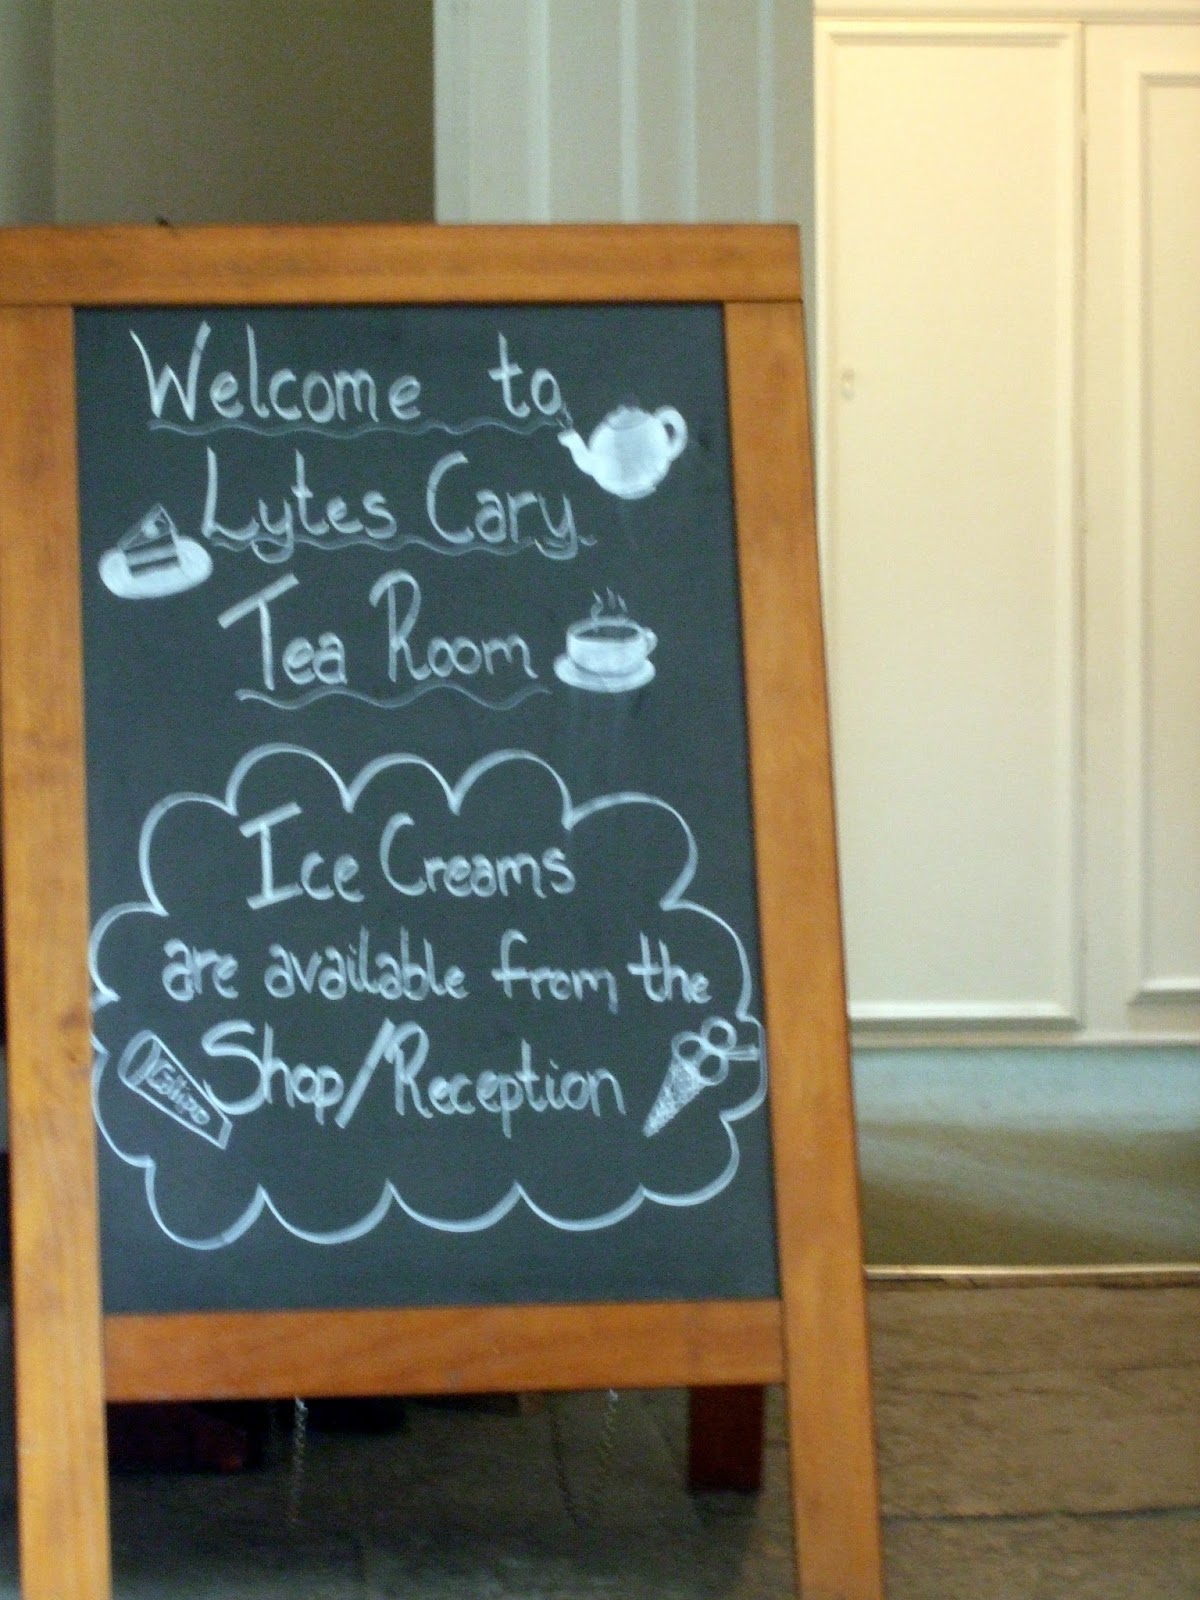 Welcome to
Lytes Cary
Tea Room
Ice Creams
are available from the
Shop/Reception
Calippo